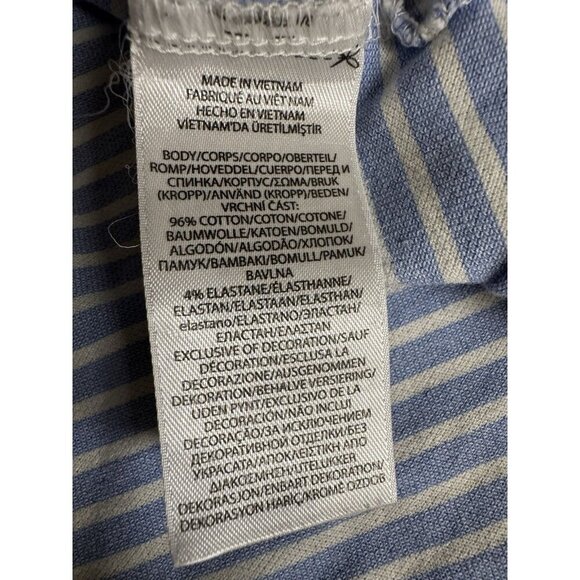 MADE IN VIETNAM
FABRIQUÉ AU VIÊT NAM
HECHO EN VIETNAM
VİETNAM'DA ÜRETİLMİŞTİR
BODY/CORPS/CORPO/OBERTEIL/
ROMP/HOVEDDEL/CUERPO/ПЕРЕД И
СПИНКА/КОРПУС/ΣΩΜΑ/BRUK
(KROPP)/ANVÄND (KROPP)/BEDEN/
VRCHNÍ ČÁST:
96% COTTON/COTON/COTONE/
BAUMWOLLE/KATOEN/BOMULD/
ALGODÓN/ALGODÃO/ХЛОПОК/
ПАМУК/ΒΑΜΒΑΚΙ/BOMULL/PAMUK/
BAVLNA
4% ELASTANE/ÉLASTHANNE/
ELASTAN/ELASTAAN/ELASTHAN/
elastano/ELASTANO/ЭЛАСТАН/
ЕЛАСТАН/ΕΛΑΣΤΑΝ
EXCLUSIVE OF DECORATION/SAUF
DÉCORATION/ESCLUSA LA
DECORAZIONE/AUSGENOMMEN
DEKORATION/BEHALVE VERSIERING/
UDEN PYNT/EXCLUSIVO DE LA
DECORACIÓN/NÃO INCLUI
DECORAÇÃO/ЗА ИСКЛЮЧЕНИЕМ
ДЕКОРАТИВНОЙ ОТДЕЛКИ/БЕЗ
УКРАСАТА/ΑΠΟΚΛΕΙΣΤΙΚΗ ΤΗ
ΔΙΑΚΟΣΜΗΣΗ/UTELUKKER
DEKORASJON/ENBART DEKORATION/
DEKORASYON HARİÇ/KROMĚ OZDOB